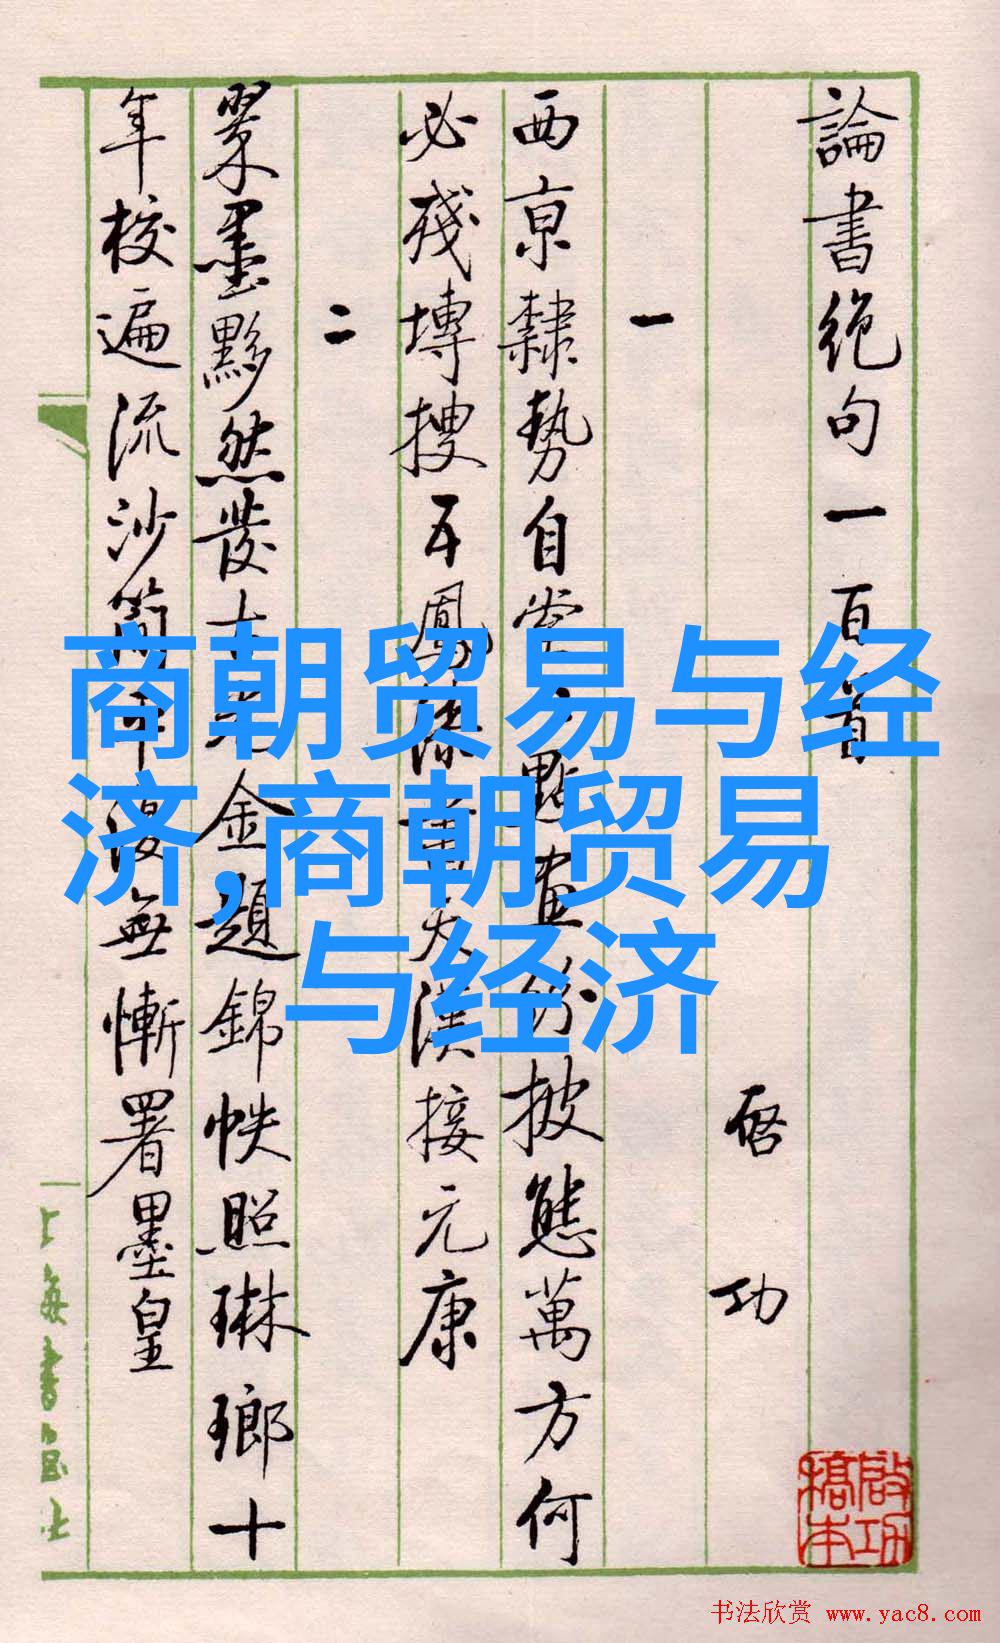 論書絕句一百首
啓功
一
西京隸勢自堂
點畫紛披態萬方何
必殘塼搜五鳳
漢接元康
二
翠墨黟然發
金題錦帙照琳瑯十
年校遍流沙簡
無慚署墨皇
上海書畫社
啟功槁本
商朝贸易与经
济,商朝贸易
与经济
书法欣赏 www.yac8.com